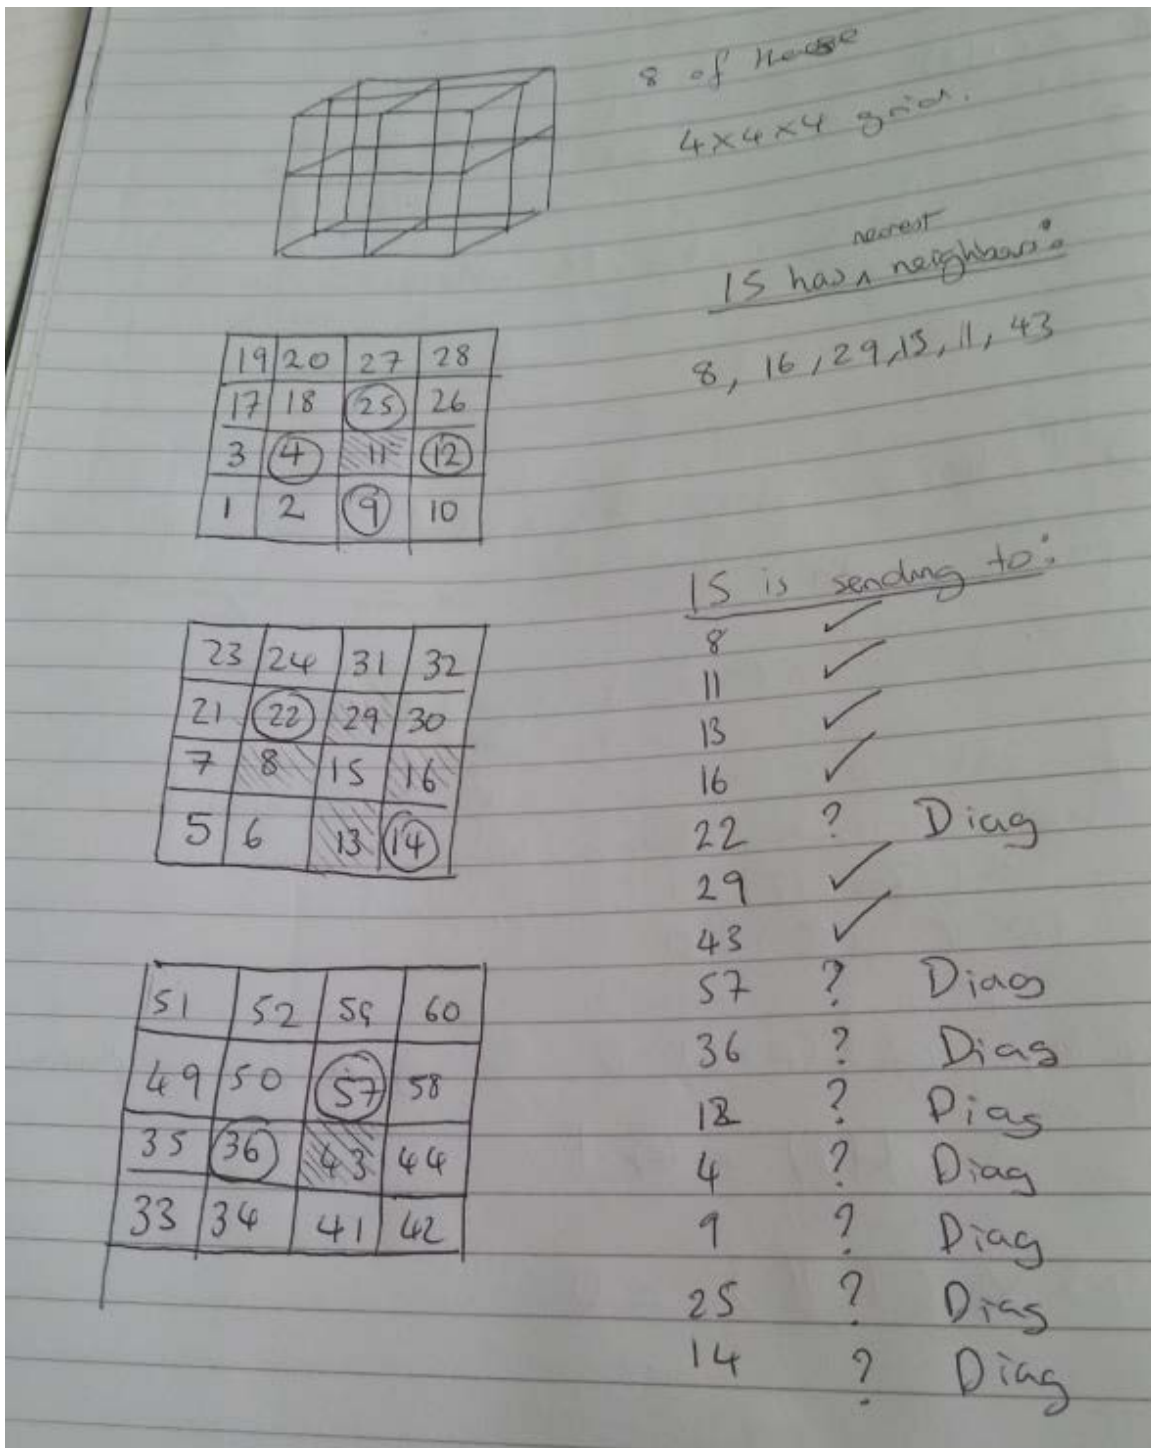 8 of these
4x4x4 grid.
nearest
15 has ^ neighbours:
8, 16, 29, 13, 11, 43
19 20 27 28
17 18 25 26
3 4 11 12
1 2 9 10
23 24 31 32
21 22 29 30
7 8 15 16
5 6 13 14
51 52 59 60
49 50 57 58
35 36 43 44
33 34 41 42
15 is sending to:
8 ✓
11 ✓
13 ✓
16 ✓
22 ? Diag
29 ✓
43 ✓
57 ? Diag
36 ? Diag
12 ? Diag
4 ? Diag
9 ? Diag
25 ? Diag
14 ? Diag